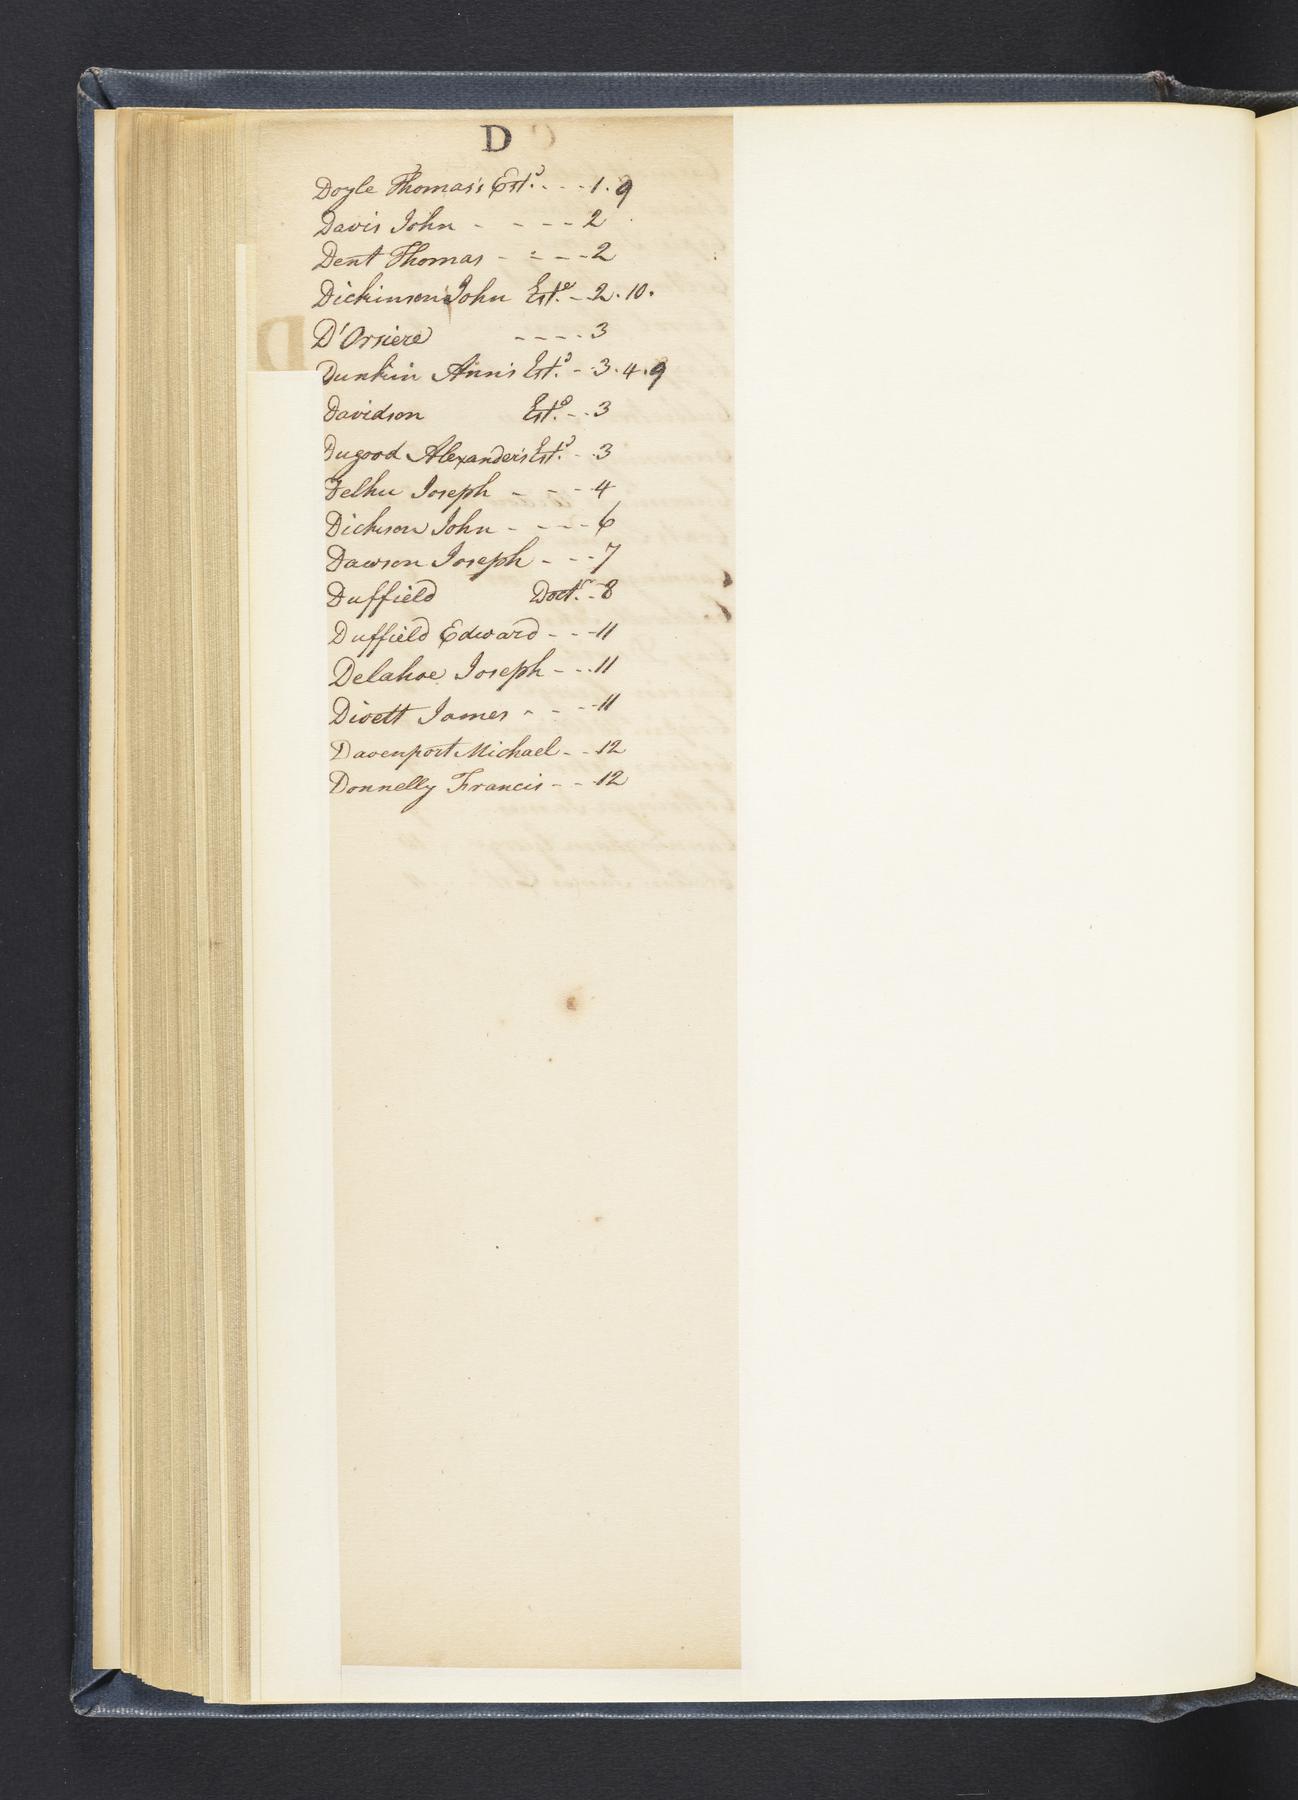 D
Doyle Thomas's Est.^s - - - 1 . 9
Davis John - - - - 2
Dent Thomas - - - - 2
Dickinson John Est.^e - 2 . 10 .
D'Orsiere - - - - 3
Dunkin Ann's Est.^s - - 3 . 4 . 9
Davidson Est.^e - - 3
Dugood Alexander's Est.^s - - 3
Joseph - - - 4
Dickson John - - - - 6
Dawson Joseph - - - 7
Duffield Doct.^r - 8
Duffield Edward - - - 11
Delahoe Joseph - - - 11
Divett James - - - - 11
Davenport Michael - - 12
Donnelly Francis - - - 12
D